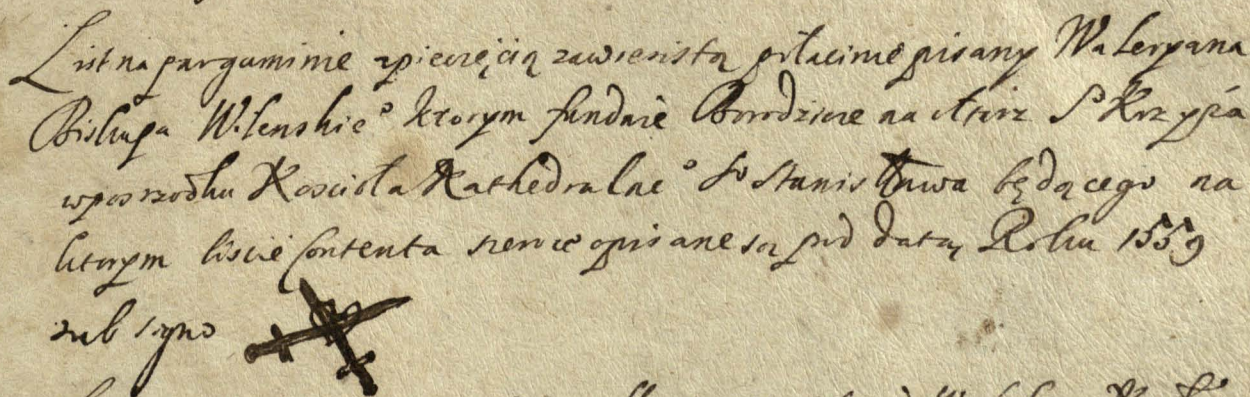 List na parguminie zpieczęcią zawiesistą połacinie pisany Waleryana
Biskupa Wilenskie° ktorym funduie na ołtarz S° Krzyża
wposrzodku Koscioła Kathedralne° S° Stanisława będącego na
ktorym liscie Contenta szerzce opisane są pod datą Roku 1559
sub signo